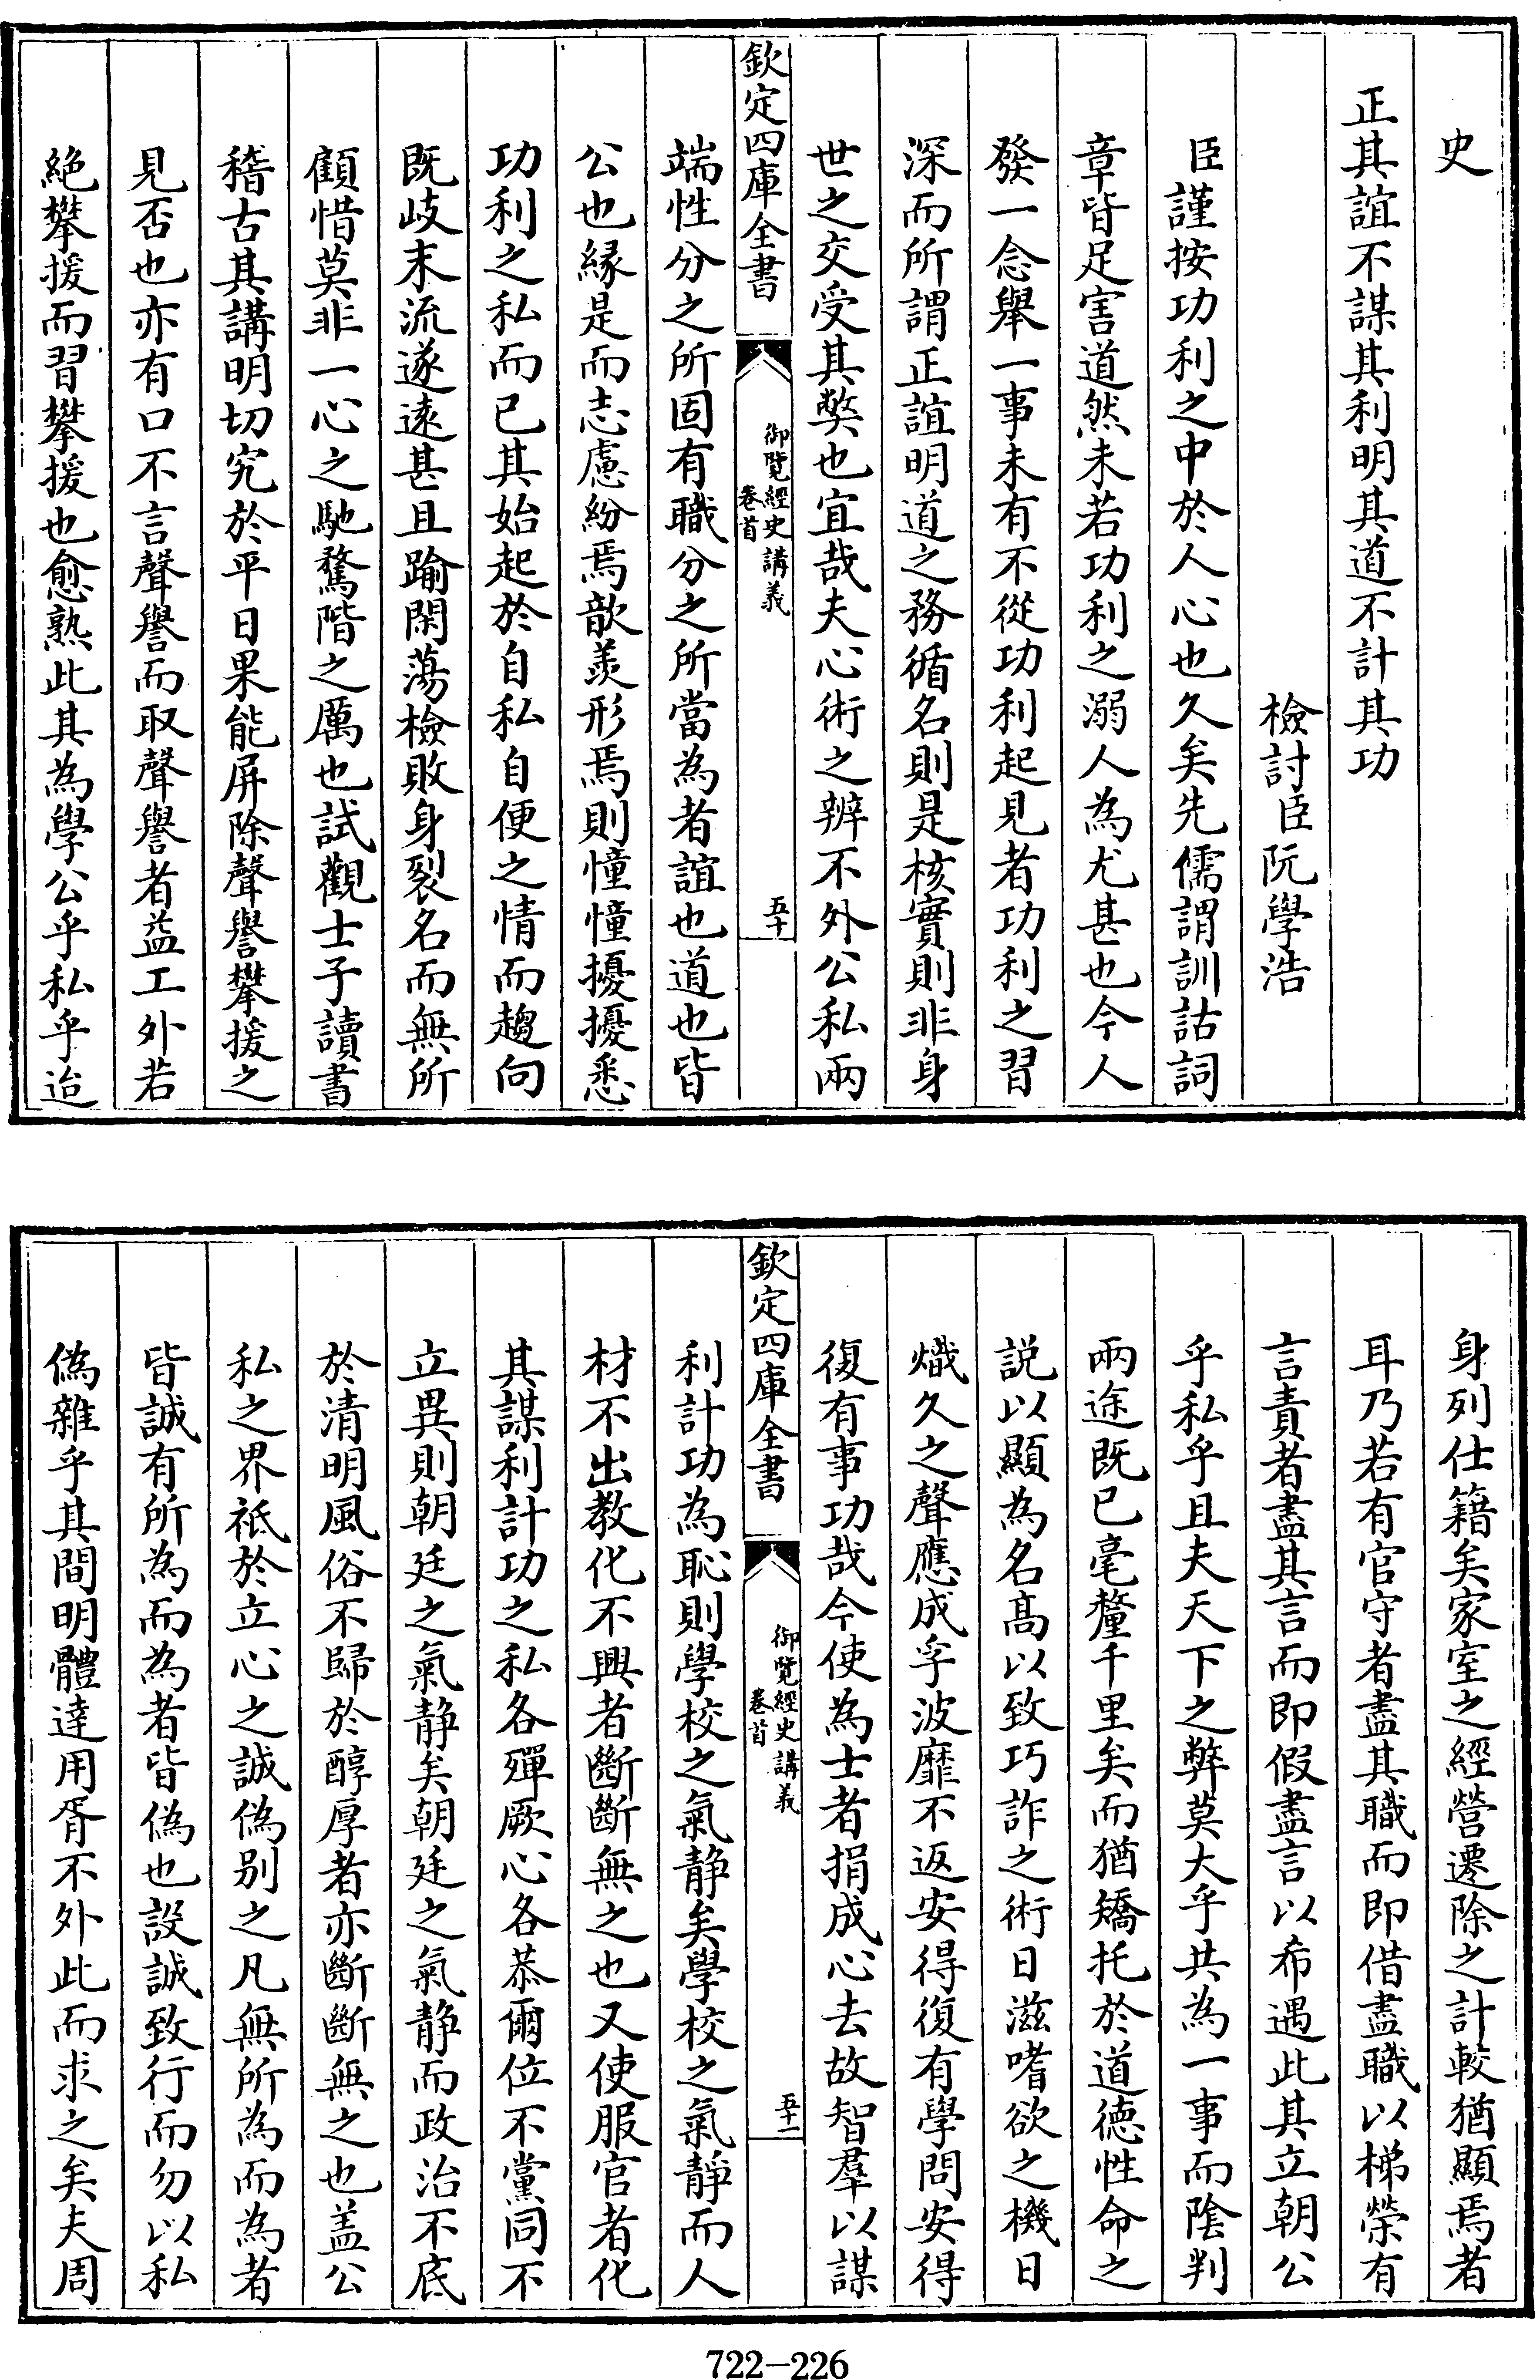 史
正其誼不謀其利明其道不計其功
檢討臣阮學浩
臣謹按功利之中於人心也久矣先儒謂訓詁詞
章皆足害道然未若功利之溺人為尤甚也今人
發一念舉一事未有不從功利起見者功利之習
深而所謂正誼明道之務循名則是核實則非身
世之交受其獘也宜哉夫心術之辨不外公私兩
欽定四庫全書
御覽經史講義
卷首
五十
端性分之所固有職分之所當為者誼也道也皆
公也緣是而志慮紛焉歆羨形焉則憧憧擾擾悉
功利之私而已其始起於自私自便之情而趨向
既歧末流遂逺甚且踰閑蕩檢敗身裂名而無所
顧惜莫非一心之馳騖階之厲也試觀士子讀書
稽古其講明切究於平日果能屏除聲譽攀援之
見否也亦有口不言聲譽而取聲譽者益工外若
絶攀援而習攀援也愈熟此其為學公乎私乎迨
身列仕籍矣家室之經營遷除之計較猶顯焉者
耳乃若有官守者盡其職而即借盡職以梯榮有
言責者盡其言而即假盡言以希遇此其立朝公
乎私乎且夫天下之弊莫大乎共為一事而陰判
兩途既已毫釐千里矣而猶矯托於道德性命之
説以顯為名髙以致巧詐之術日滋嗜欲之機日
熾久之聲應成孚波靡不返安得復有學問安得
復有事功哉今使為士者捐成心去故智羣以謀
欽定四庫全書
御覽經史講義
卷首
五十一
利計功為恥則學校之氣靜矣學校之氣靜而人
材不出教化不興者斷斷無之也又使服官者化
其謀利計功之私各殫厥心各恭爾位不黨同不
立異則朝廷之氣靜矣朝廷之氣靜而政治不底
於清明風俗不歸於醇厚者亦斷斷無之也盖公
私之界祗於立心之誠偽别之凡無所為而為者
皆誠有所為而為者皆偽也設誠致行而勿以私
偽雜乎其間明體達用胥不外此而求之矣夫周
722-226